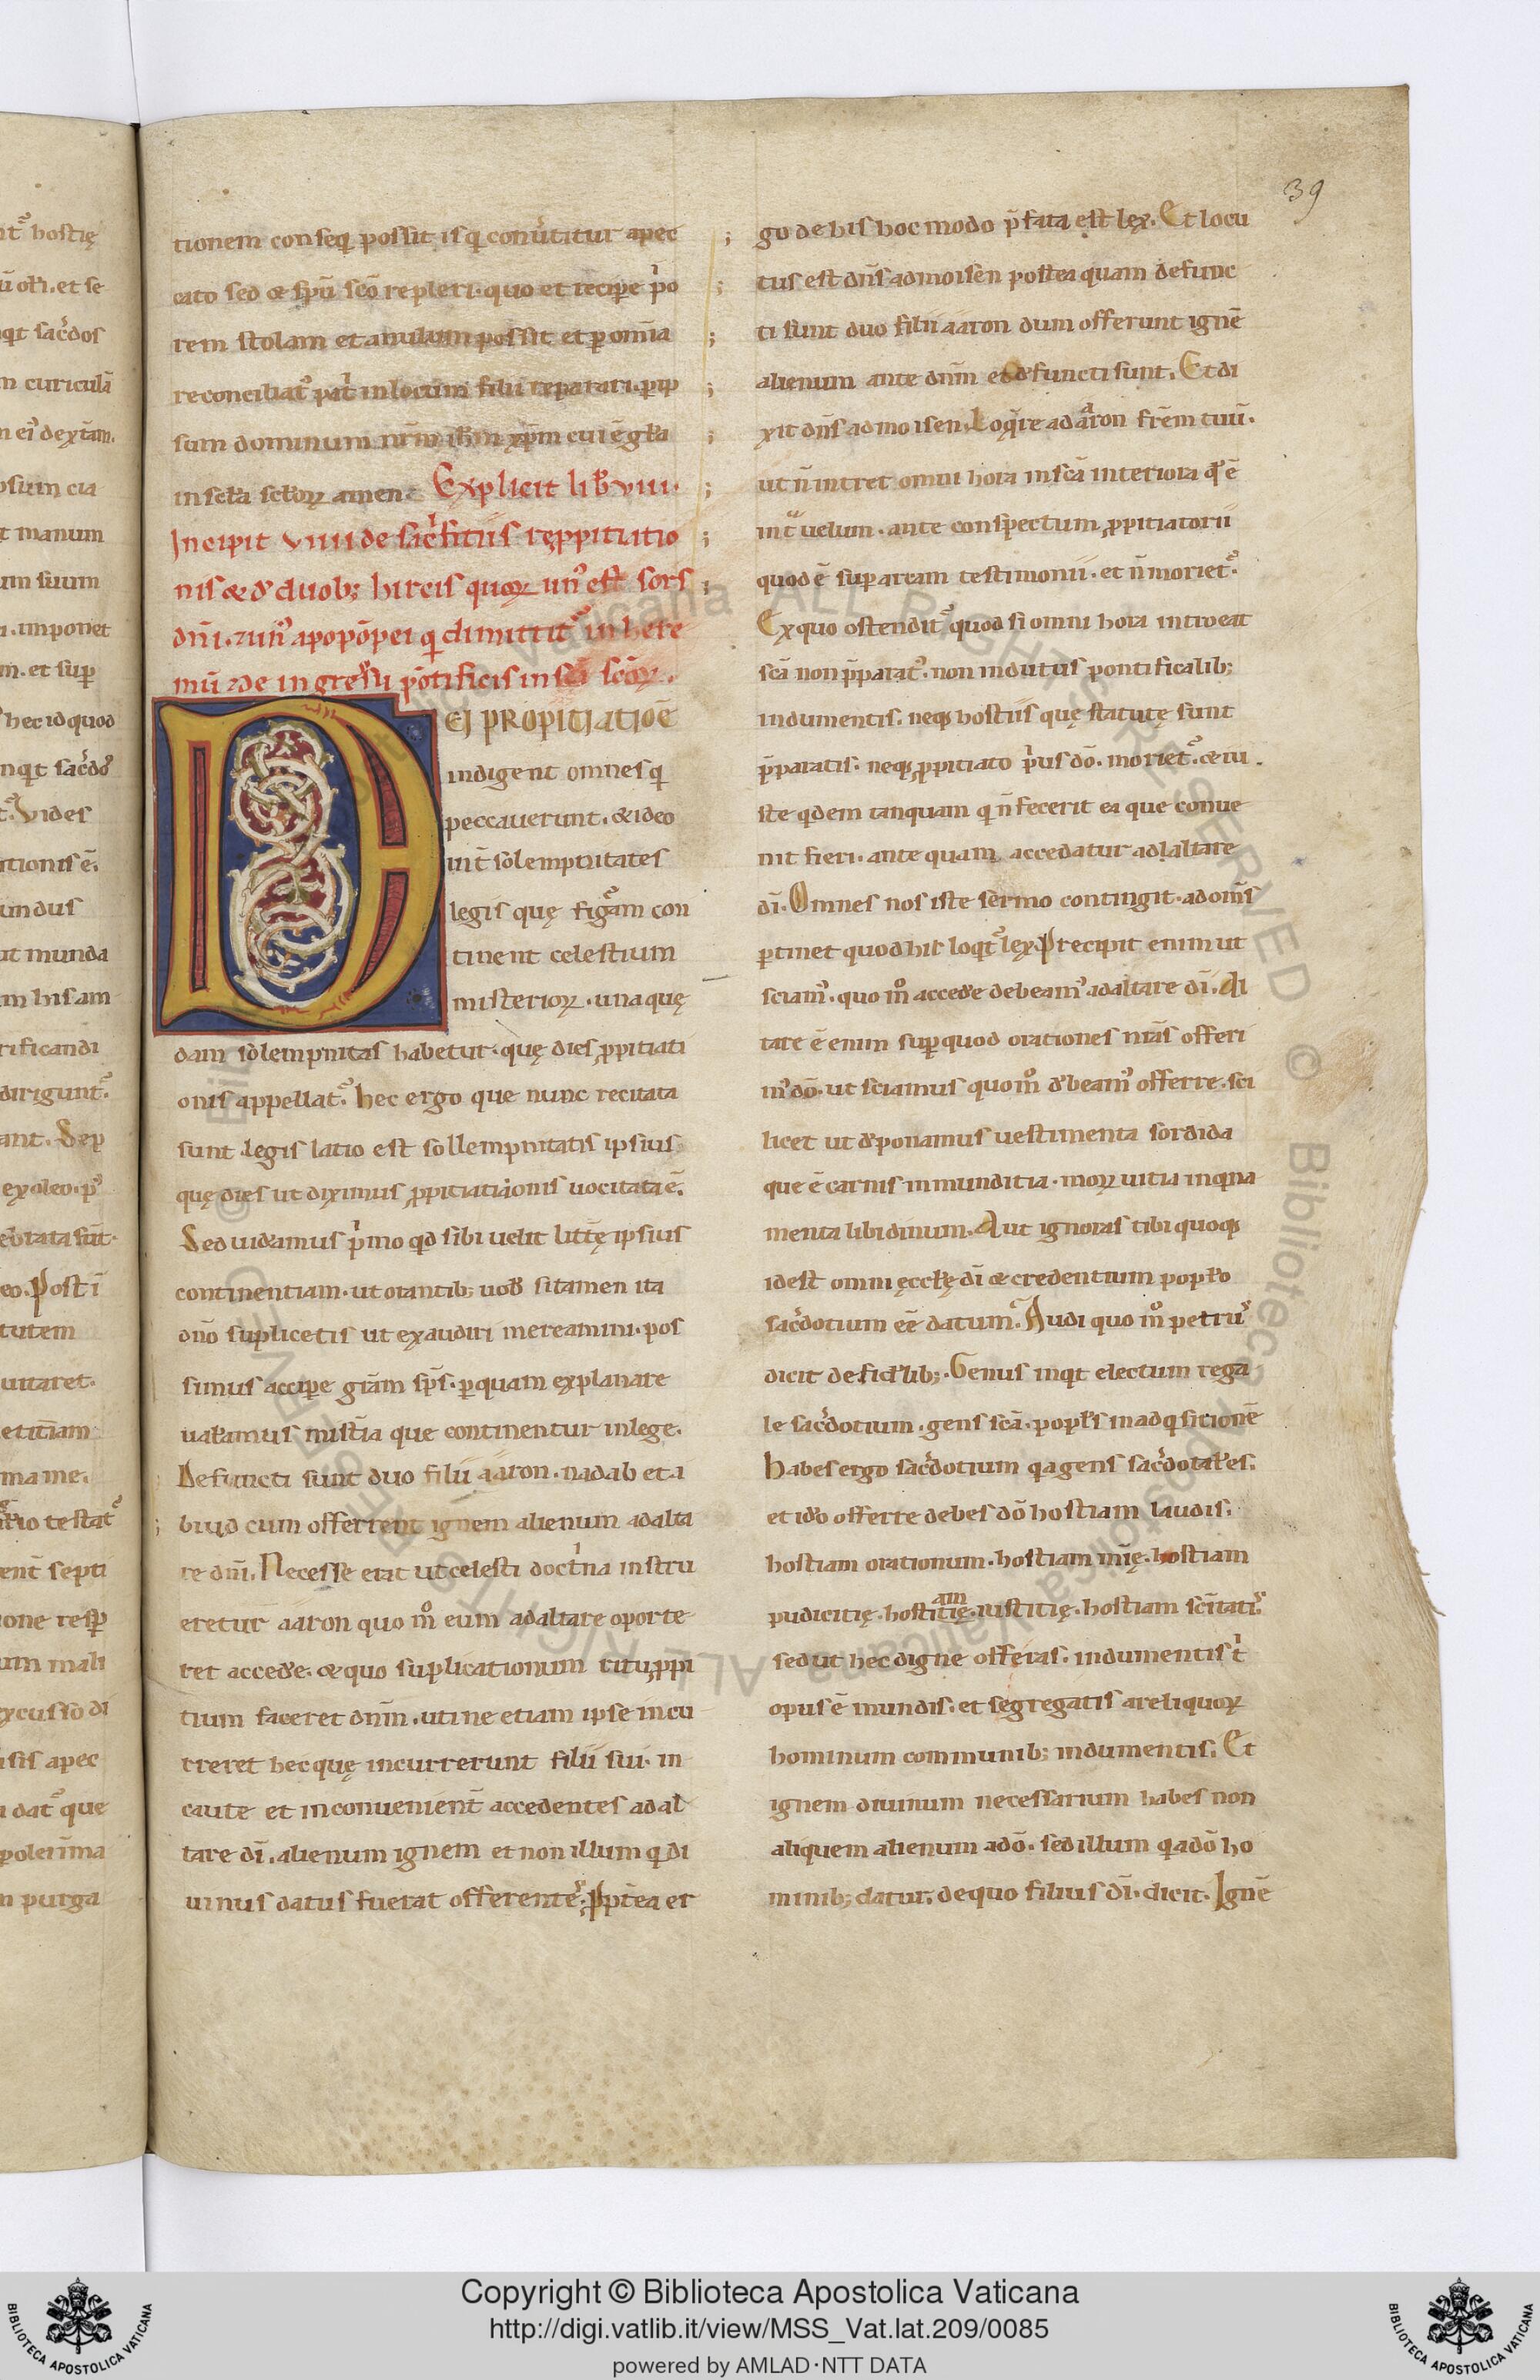 39
tionem conseq possit is q conu̾titur apec
cato sed & spū scō repleri. quo et recipe p̾o
rem stolam et anulum possit et p omīa
reconciliat᷒ pat̾ in locum filii reparari. p ip
sum dominum nrm̄ ihm̄ xpm̄ cui ē gła
in scła scłoꝝ amen. Explicit lib̾ viii.
Incipit viiii de sac̾ficiis reppitiatio
nis & d̾ duob; hircis quoꝝ un᷒ est sors
dn̄i. ⁊ un᷒ apopōpei q dimittit᷒ in here
mū ⁊ de ingressu pōtificis in scā scōꝝ.
DEI PROPITIATIOĒ
indigent omnes q
peccauerunt. & ideo
int̄ solemptitates
legis quę figu᷒am con
tinent celestium
misterioꝝ. una quę
dam solempnitas habetur. quę dies ꝓpitiati
onis appellat᷒. hec ergo que nunc recitata
sunt. legis latio est sollempnitatis ipsius
quę dies ut diximus ꝓpitiationis uocitata ē.
Sed uideamus p̾mo qd sibi uelit littę̄ ipsius
continentiam. ut orantib; uob̾ si tamen ita
dn̄o suplicetis ut exaudiri mereamini. pos
simus accipe grām sp̄s. p quam explanare
ualeamus mist̄ia que continentur in lege.
Defuncti sunt duo filii aaron. nadab et a
biud cum offerrent ignem alienum ad alta
re dn̄i. Necesse erat ut celesti doct̾na instru
eretur aaron quo m̊ eum ad altare oporte
ret accede̾. & quo suplicationum ritu ꝓpi
tium faceret dnm̄. uti ne etiam ipse incu
rreret hec quę incurrerunt filii sui. in
caute et inconuenient̄ accedentes ad al
tare dī. alienum ignem et non illum q di
uinus datus fuerat offerente᷒s. ꝓpt̄ea er
go de his hoc modo p̄fata est lex. Et locu
tus est dn̄s ad moisen postea quam defunc
ti sunt duo filii aaron dum offerunt ignē
alienum ante dnm̄ et defuncti sunt. Et di
xit dn̄s ad moisen. Loq̾re ad aaron frēm tuū.
ut n̄ intret omni hora in scā interiora q᷒ ē
int᷒ uelum. ante conspectum ꝓpitiatorii
quod ē sup arcam testimonii. et n̄ moriet᷒.
Ex quo ostendit᷒ quod si omni hora introeat
scā non p̄parat᷒. non indutus pontificalib;
indumentis. neqꝫ hostiis quę statutę sunt
p̄paratis. neqꝫ ꝓpitiato p̾us dō. moriet᷒. & iu
ste qdem tanquam q n̄ fecerit ea que conue
nit fieri. ante quam accedatur ad altare
dī. Omnes nos iste sermo contingit. ad om̄s
ptinet quod hic loqt᷒ lex. Precipit enim ut
sciam᷒. quo m̊ accede̾ debeam᷒ ad altare dī. Al
tare ē enim sup quod orationes nrās offeri
m᷒ dō. ut sciamus quo m̊ d̾beam᷒ offerre. sci
licet ut d̾ponamus uestimenta sordida
que ē carnis inmunditia. moꝝ uitia inqna
menta libidinum. Aut ignoras tibi quoqꝫ
id est omni ęccłę dī & credentium popło
sac̾dotium eē datum. Audi quo m̊ petru᷒s
dicit de fidelib;. Genus inqt electum rega
le sac̾dotium. gens scā. popłs in adqsitionē
habes ergo sac̾dotium q̄a gens sac̾dotales.
et ido̾ offerre debes dō hostiam laudis.
hostiam orationum. hostiam mīę. hostiam
pudicitię. hostiam iustitię. hostiam scītati᷒s.
sed ut hec digne offeras. indumentis t̾
opus ē mundis. et segregatis a reliquoꝝ
hominum communib; indumentis. Et
ignem diuinum necessarium habes non
aliquem alienum a dō. sed illum q a dō ho
minib; datur. de quo filius dī. dicit. Ignē
Copyright © Biblioteca Apostolica Vaticana
http://digi.vatlib.it/view/MSS_Vat.lat.209/0085
powered by AMLAD·NTT DATA